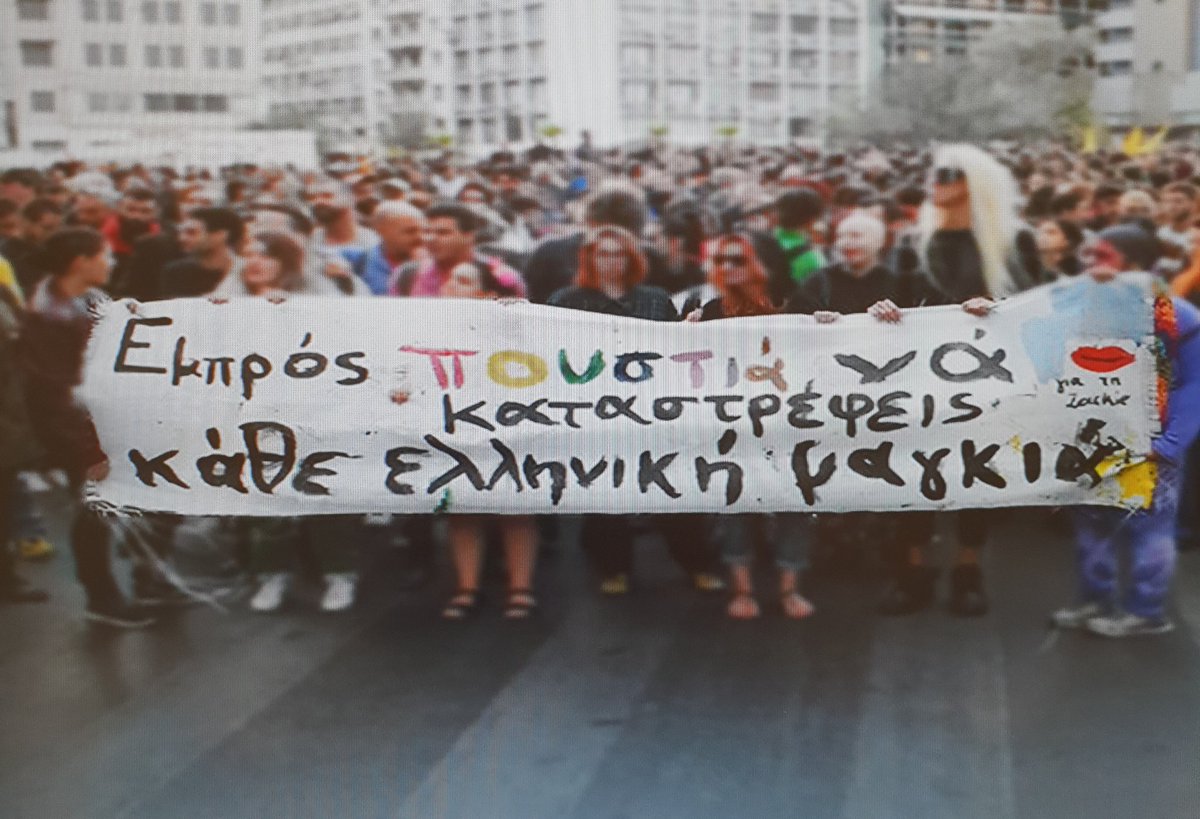 Εμπρός πουστιά νά
καταστρέφεις
κάθε ελληνική μαγκιά
για τη
Zackie